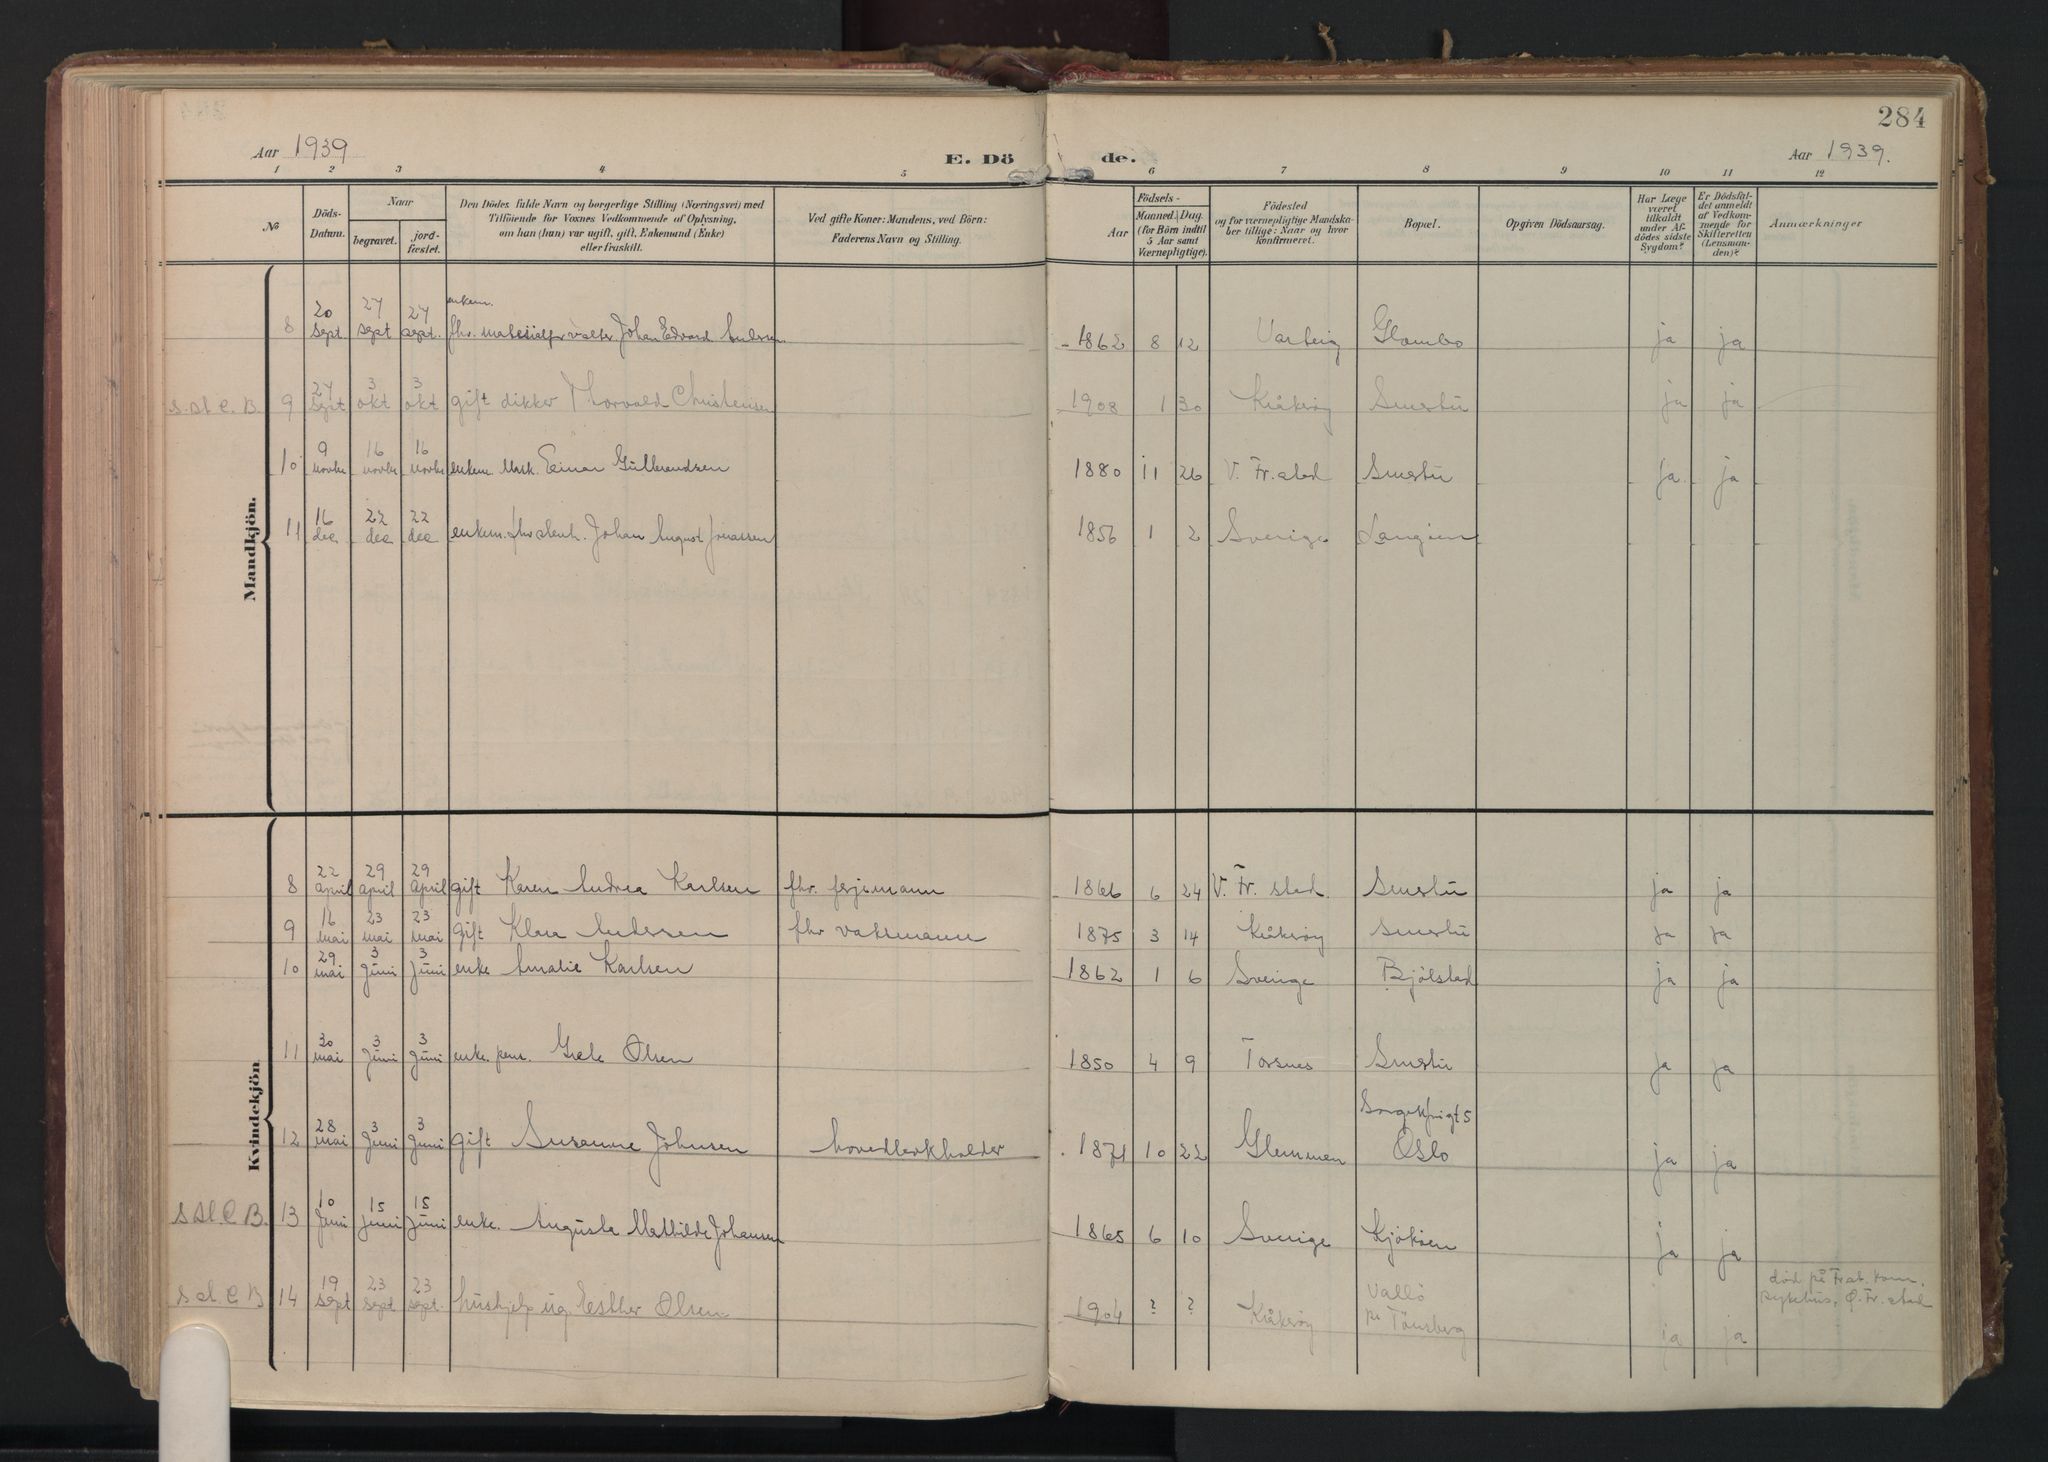 284
Aar 1939
E. Dö
de.
Aar 1939.
1 2 3 4 5 6 7 8 9 10 11 12
№
Döds-
Datum.
Naar
begravet.
jord-
fæstet.
Den Dödes fulde Navn og borgerlige Stilling (Næringsvei) med
Tilföiende for Voxnes Vedkommende af Oplysning,
om han (hun) var ugift, gift, Enkemand (Enke)
eller fraskilt.
Ved gifte Koner: Mandens, ved Börn:
Faderens Navn og Stilling.
Födsels-
Aar
Maaned.
Dag.
(for Börn indtil
5 Aar samt
Værnepligtige).
Födested
og for værnepligtige Mandska-
ber tillige: Naar og hvor
konfirmeret.
Bopæl.
Opgiven Dödsaarsag.
Har Læge
været
tilkaldt
under Af-
dödes sidste
Sygdom?
Er Dödsfal-
det anmeldt
af Vedkom-
mende for
Skifteretten
(Lensman-
den)?
Anmærkninger
Mandkjön.
8 20 sept 27 sept 27 sept. enkem. fhv. materialforvalter Johan Edvard Andersen 1862 8 12 Varteig Glombo ja ja
9 27 sept 3 okt 3 okt gift dikker Thorvald Christensen 1908 1 30 Kråkerøy Smertu ja ja
10 9 novbr 16 novbr 16 novbr enkem. Mask. Einar Gulbrandsen 1880 11 26 V. Fr.stad Smertu ja ja
11 16 dec 22 dec 22 dec enkem. fhv stenh. Johan August Jonassen 1856 1 2 Sverige Langøen
Kvindekjön
8 22 April 29 April 29 April gift Karen Andrea Karlsen fhv. ferjemann 1866 6 24 V. Fr. stad. Smertu ja ja
9 16 mai 23 mai 23 mai gift Klara Andersen fhv vaktmann 1875 3 14 Kråkrøy Smertu ja ja
10 29 mai 3 Juni 3 Juni enke Amalie Karlsen 1862 1 6 Sverige Bjølstad ja ja
11 30 mai 3 Juni 3 Juni enke. pens. Olsen 1850 4 9 Torsnes Smertu ja ja
12 28 mai 3 Juni 3 Juni gift Susanne Johnsen hovedbokholder 1871 10 22 Glemmen Oslo ja ja
13 10 Juni 15 Juni 15 Juni enke. Augusta Mathilde Johansen 1865 6 10 Sverige Kjøkøen ja ja
14 19 sept 23 sept 23 sept. hushjelp ug Esther Olsen 1904 ? ? Kråkrøy Vallö pr Tönsberg ja ja død på Fr.st. kom. sykehus, Ø. Fr. stad